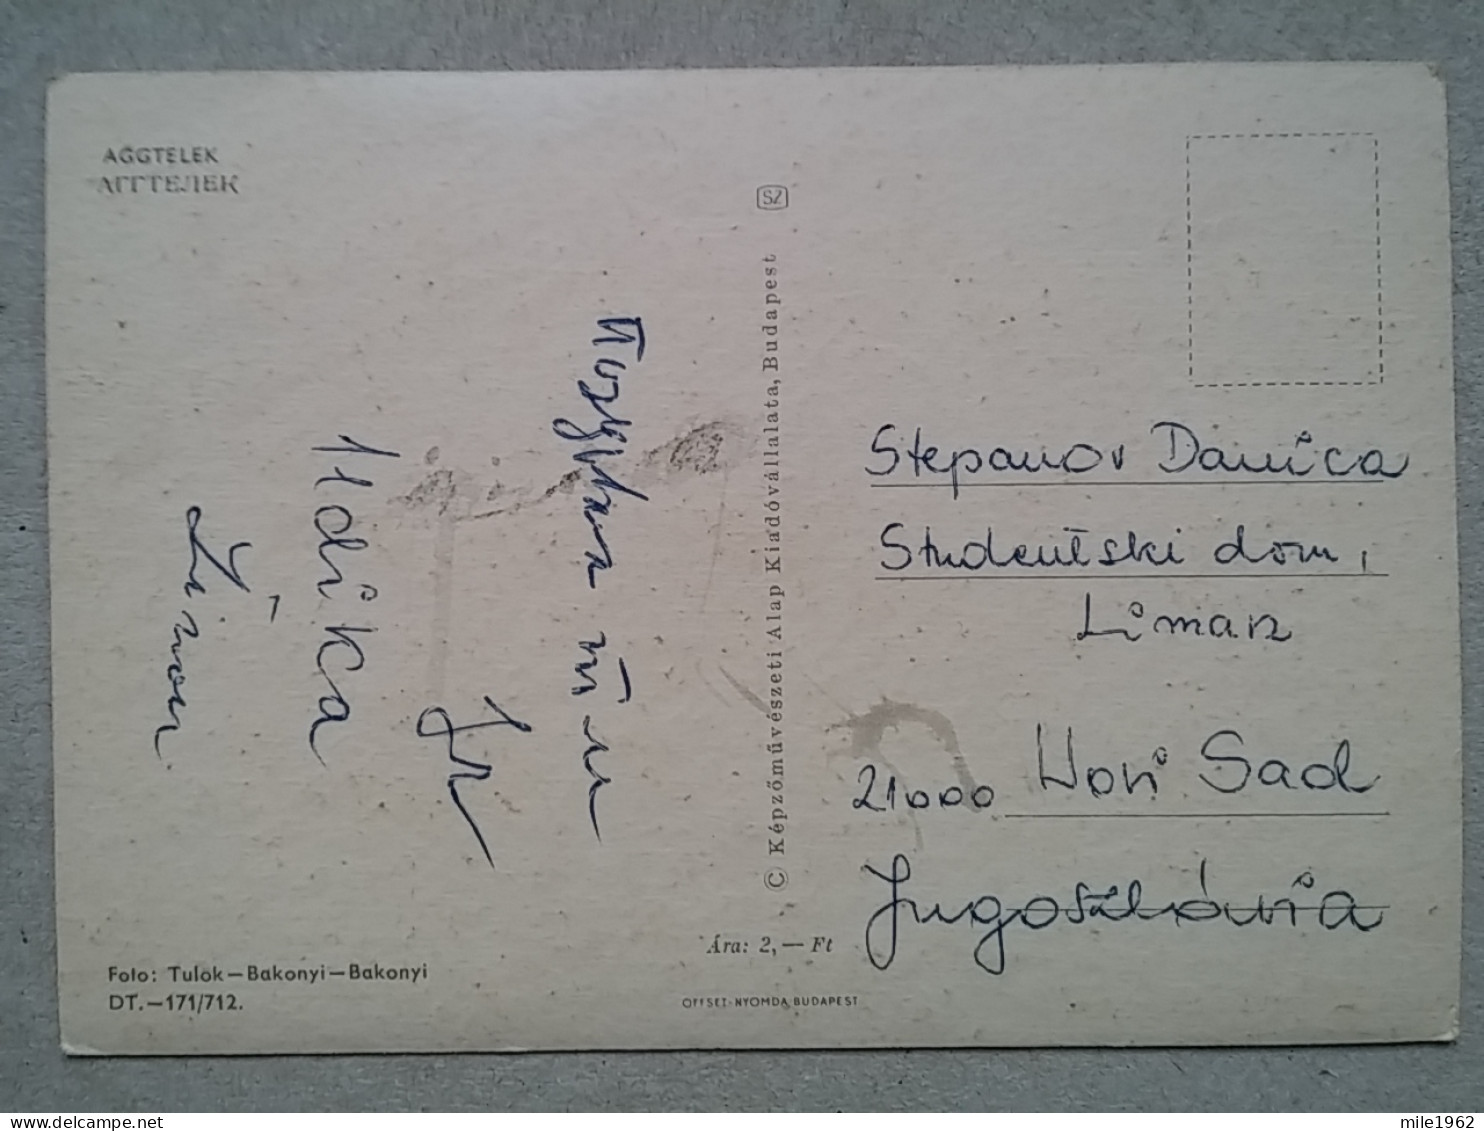 AGGTELEK
АГГТЕЛЕК
SZ
© Képzőművészeti Alap Kiadóvállalata, Budapest
Ildika
Stepanov Danica
Studentski dom,
Liman
21000 Novi Sad
Jugoszlávia
Ára: 2,— Ft
Foto: Tulok—Bakonyi—Bakonyi
DT.—171/712.
OFFSET-NYOMDA BUDAPEST
mile1962